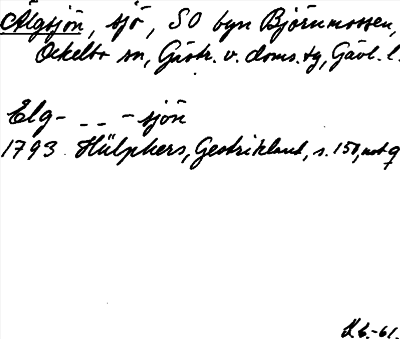 Älgsjön, sjö, SO byn Björnmossen,
Ockelbo sn, Gästr. v. doms.tg, Gävl. l.
Elg- - - - sjön
1793 Hülphers, Gestrikland, s. 150, not q
Kb.-61.